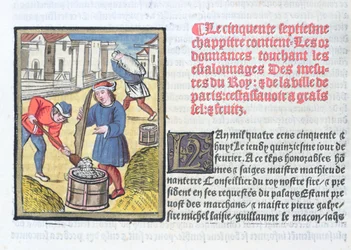 ¶Le cinquente septiesme
chappitre contient. Les or
donnances touchant les
essalonnages Des mesu
res du Roy: & de la ville de
paris: cestassauoir a grais
sel: & fruitz.
LAn mil quatre cens cinquente &
huyt Le ieudy quinziesme iour de
feurier. A ce tẽps honorables hõ
mes & saiges maistre mathieu de
nanterre Conseillier du roy nostre sire, & pre
sident es ses requestes du palays. Estant preuost
uost des marchans, & maistre pierre galye
sire michel laisie, guillaume le macon, iaq̃s